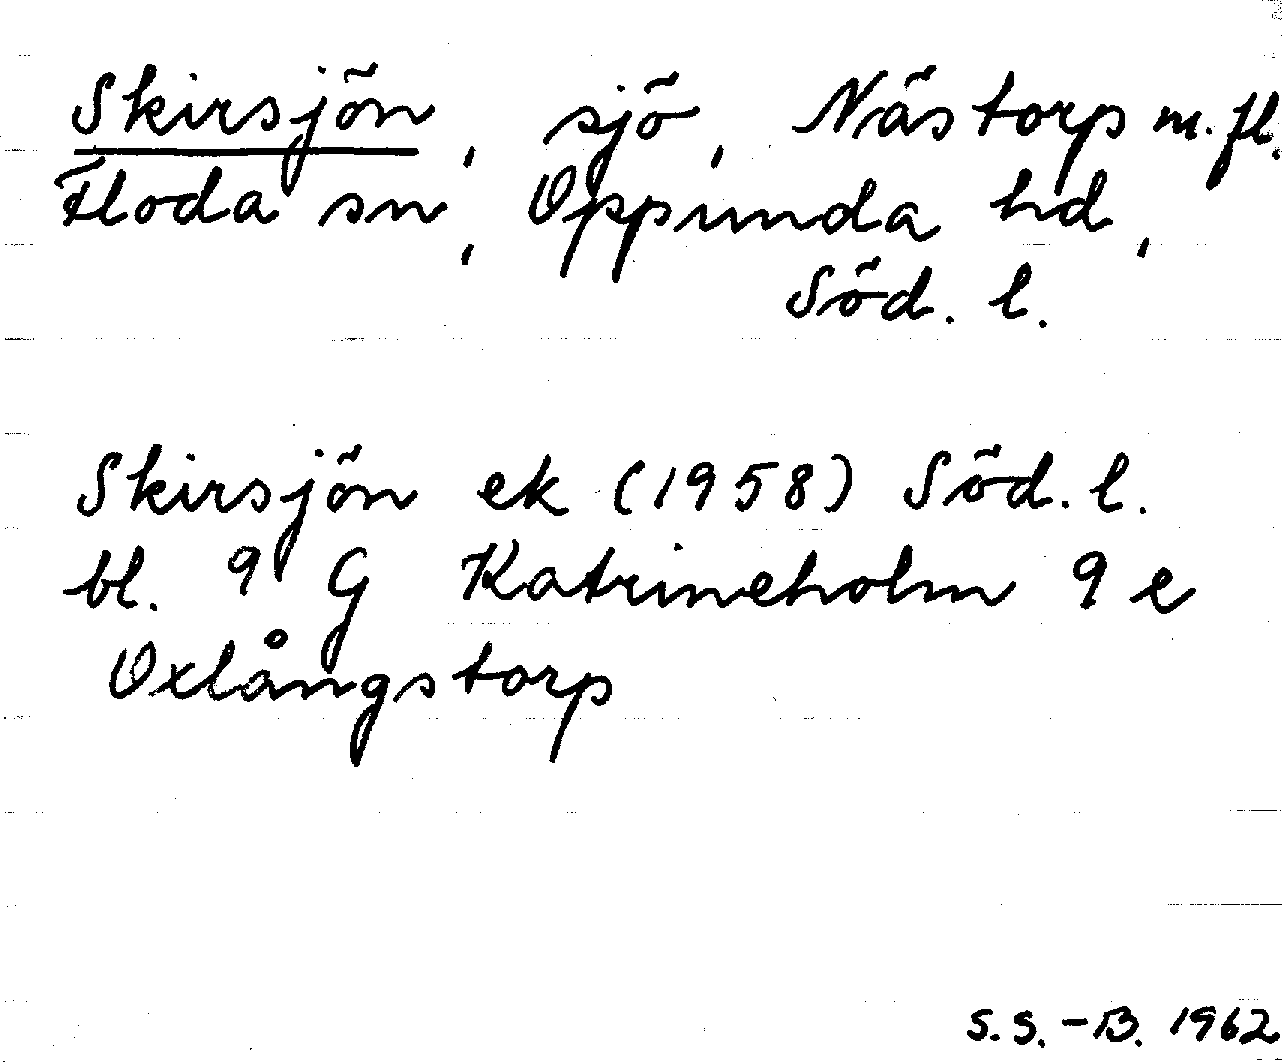 Skirsjön, sjö, Nästorp m.fl.
Floda sn, Oppunda hd,
Söd. l.
Skirsjön ek (1958) Söd. l.
bl. 9 G Katrineholm 9 e
Oxlångstorp
S.S.-B. 1962